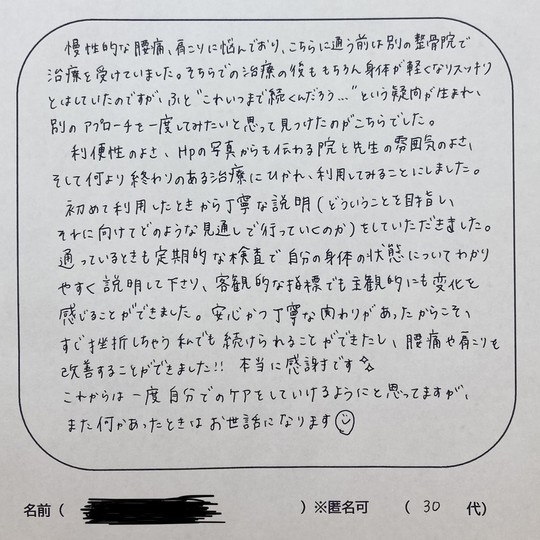 慢性的な腰痛、肩こりに悩んでおり、こちらに通う前は別の整骨院で
治療を受けていました。そちらでの治療の後ももちろん身体が軽くなりスッキリ
とはしていたのですが、ふと"これいつまで続くんだろう…"という疑問が生まれ、
別のアプローチを一度してみたいと思って見つけたのがこちらでした。
利便性のよさ、HPの写真からも伝わる院と先生の雰囲気のよさ、
そして何より終わりのある治療にひかれ、利用してみることにしました。
初めて利用したときから丁寧な説明(どういうことを目指し、
それに向けてどのような見通しで行っていくのか)をしていただきました。
通っているときも定期的な検査で自分の身体の状態についてわかり
やすく説明して下さり、客観的な指標でも主観的にも変化を
感じることができました。安心かつ丁寧な関わりがあったからこそ、
すぐ挫折しちゃう私でも続けられることができたし、腰痛や肩こりも
改善することができました!! 本当に感謝です
これからは一度自分でのケアをしていけるようにと思ってますが、
また何かあったときはお世話になります
名前( )※匿名可 ( 30 代)